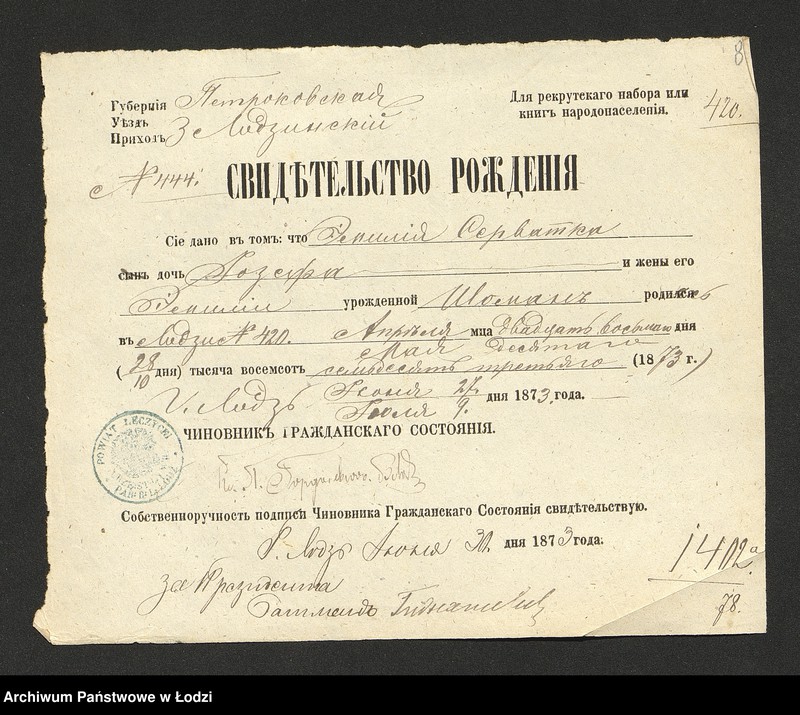 8
Губернія Петроковская
Для рекрутскаго набора или
книгъ народонаселенія.
420.
Уѣздъ
Приходъ 3 Лодзинскій
№ 444.
СВИДѢТЕЛЬСТВО РОЖДЕНІЯ
Сіе дано въ томъ: что Серватка
сынъ дочь Іозефа и жены его
урожденной родился
въ Лодзи № 420. Апрѣля мца двадцать восьмаго дня
Мая десятаго
(28/10 дня) тысяча восемсотъ семьдесятъ третьяго (1873 г.)
Г. Лодзь Іюня 27 дня 1873 года.
Іюля 9.
ЧИНОВНИКЪ ГРАЖДАНСКАГО СОСТОЯНІЯ.
POWIAT ŁECZYCKI
Собственноручность подписи Чиновника Гражданскаго Состоянія свидѣтельствую.
Г. Лодзь Іюня 30. дня 1873 года.
За Президента
1402
78.
Archiwum Państwowe w Łodzi